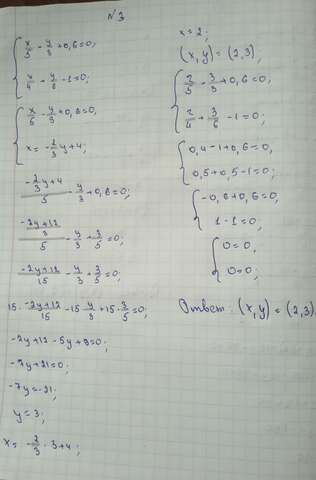 №3
{ x/5 - y/3 + 0,6 = 0;
x/4 + y/6 - 1 = 0;
{ x/5 - y/3 + 0,6 = 0,
x = -2/3 y + 4;
(-2/3 y + 4)/5 - y/3 + 0,6 = 0;
((-2y + 12)/3)/5 - y/3 + 3/5 = 0;
(-2y + 12)/15 - y/3 + 3/5 = 0;
15 · (-2y + 12)/15 - 15 · y/3 + 15 · 3/5 = 0;
-2y + 12 - 5y + 9 = 0;
-7y + 21 = 0;
-7y = -21;
y = 3;
x = -2/3 · 3 + 4;
x = 2;
(x, y) = (2, 3),
{ 2/5 - 3/3 + 0,6 = 0;
2/4 + 3/6 - 1 = 0;
{ 0,4 - 1 + 0,6 = 0,
0,5 + 0,5 - 1 = 0;
{ -0,6 + 0,6 = 0,
1 - 1 = 0,
{ 0 = 0,
0 = 0;
Ответ: (x, y) = (2, 3).